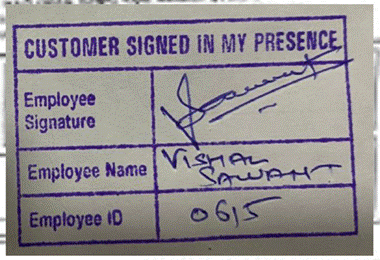 CUSTOMER SIGNED IN MY PRESENCE
Employee
Signature
Employee Name VISHAL
SAWANT
Employee ID 0615